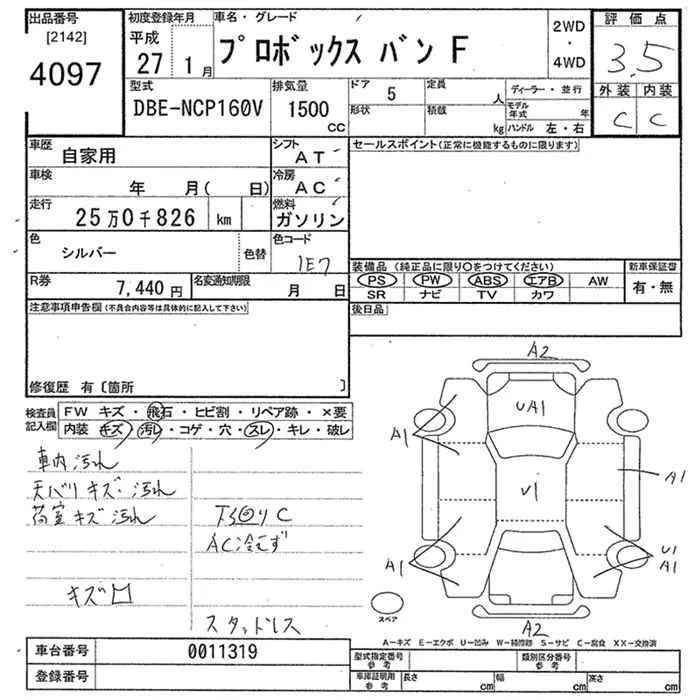 出品番号 初度登録年月 車名・グレード 評価点
[2142] 平成 プロボックス バン F 2WD
・
4WD
4097 27 1月 3.5
型式 排気量 ドア 5 定員 人 ディーラー・並行 外装 内装
DBE-NCP160V 1500 CC 形状 積載 kg モデル年式 年 C C
ハンドル 左・右
車歴 自家用 シフト AT セールスポイント(正常に機能するものに限ります)
車検 年 月( 日) 冷房 AC
走行 25万0千826 km 燃料 ガソリン
色 シルバー 色替 色コード 1E7
装備品(純正品に限り〇をつけてください) 新車保証書
R券 7,440円 名変通知期限 月 日 PS PW ABS エアB AW 有・無
SR ナビ TV カワ
注意事項申告欄(不具合内容等は具体的に記入して下さい) 後日品
修復歴 有〔箇所 〕
検査員記入欄 FW キズ・飛石・ヒビ割・リペア跡・×要
内装 キズ・汚レ・コゲ・穴・スレ・キレ・破レ
車内汚れ
天バリキズ・汚れ
荷室キズ汚れ 下回りC
AC冷えず
キズ凹
スタッドレス
A2
UA1
A1 A1
U1
A1 U1
A1
A2
スペア
A-キズ E-エクボ U-凹み W-補修跡 S-サビ C-腐食 XX-交換済
車台番号 0011319 型式指定番号 参考 類別区分番号 参考
登録番号 車庫証明用 参考 長さ cm 幅 cm 高さ cm